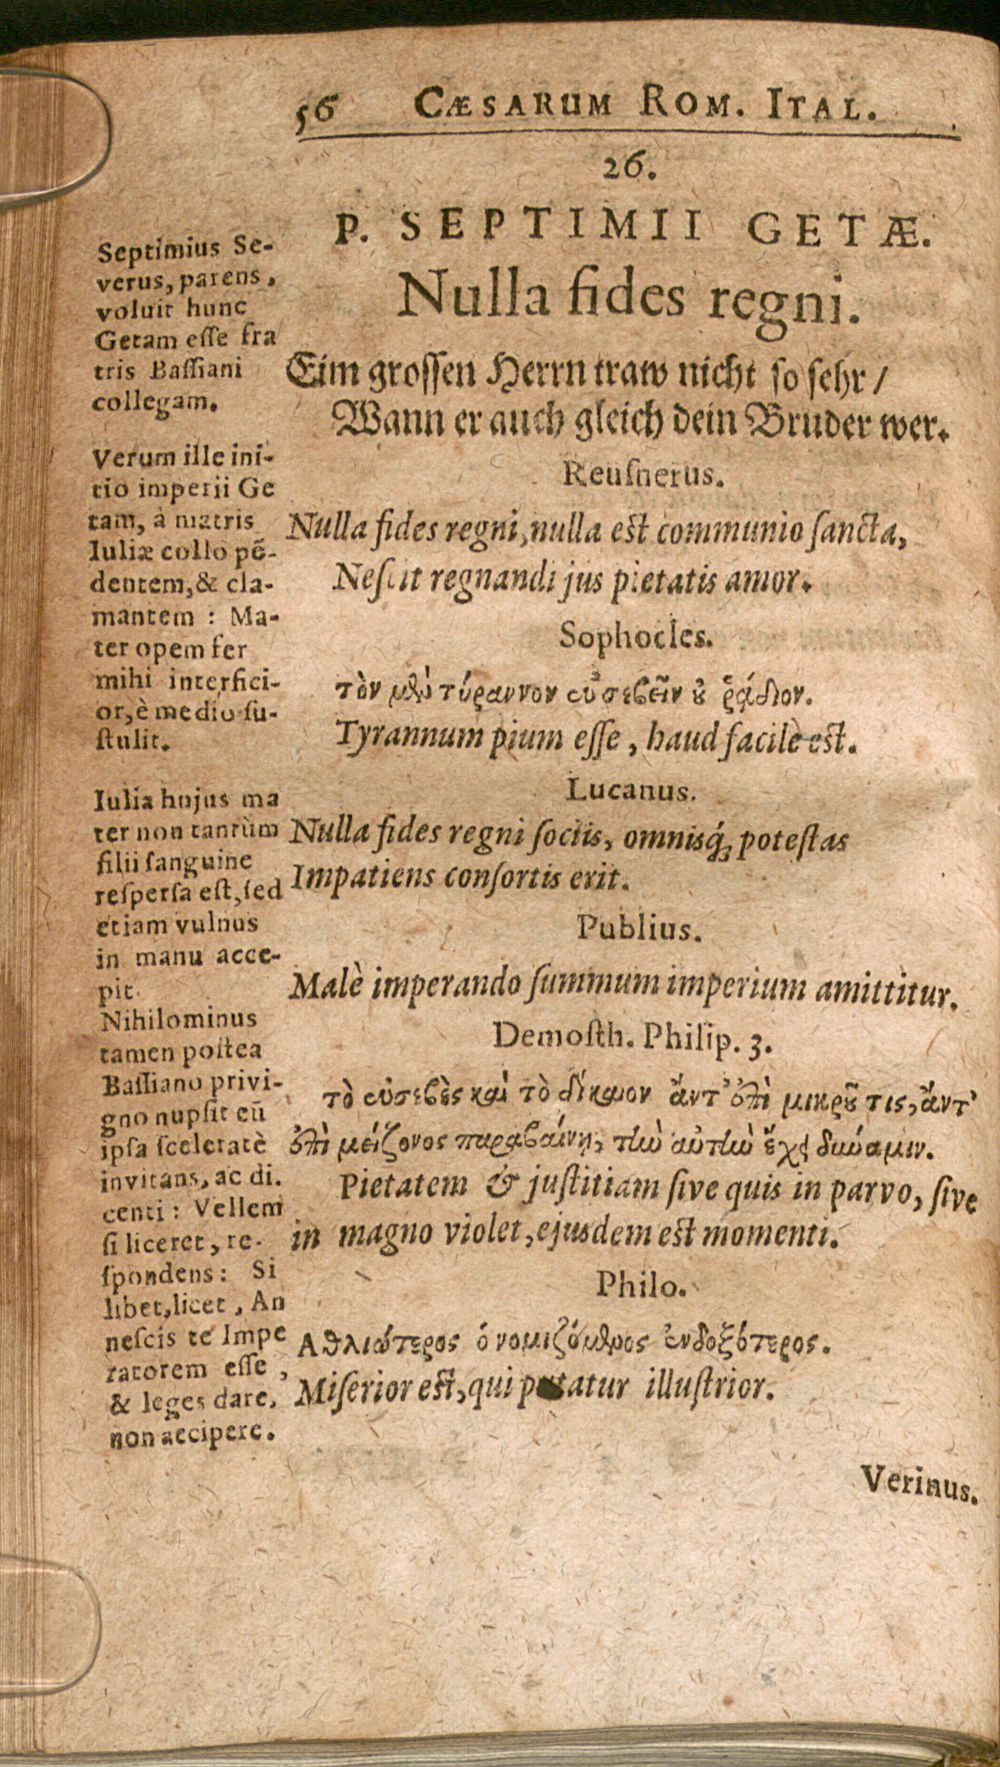 56 CÆSARUM ROM. ITAL.
26.
P. SEPTIMII GETÆ.
Nulla fides regni.
Eim grossen Herrn traw nicht so sehr /
Wann er auch gleich dein Bruder wer.
Reuſnerus.
Nulla fides regni, nulla est communio ſancta,
Neſcit regnandi jus pietatis amor.
Sophocles.
τὸν μὲν τύραννον εὐσεβεῖν οὐ ῥᾴδιον.
Tyrannum pium eſſe, haud facilè est.
Lucanus.
Nulla fides regni ſociis, omnisq́ue poteſtas
Impatiens conſortis erit.
Publius.
Malè imperando ſummum imperium amittitur.
Demoſth. Philip. 3.
τὸ εὐσεβὲς καὶ τὸ δίκαιον ἄντ' ἐπὶ μικροῦ τις, ἄντ'
ἐπὶ μείζονος παραβαίνῃ, τὴν αὐτὴν ἔχει δύναμιν.
Pietatem & juſtitiam ſive quis in parvo, ſive
in magno violet, ejusdem est momenti.
Philo.
Αθλιώτερος ὁ νομιζόμενος ἐνδοξότερος.
Miſerior est, qui putatur illuſtrior.
Verinus.
Septimius Se-
verus, parens,
voluit hunc
Getam eſſe fra
tris Baſſiani
collegam.
Verum ille ini-
tio imperii Ge
tam, à matris
Iuliæ collo pẽ-
dentem, & cla-
mantem : Ma-
ter opem fer
mihi interfici-
or, è medio ſu-
ſtulit.
Iulia hujus ma
ter non tantùm
filii ſanguine
reſperſa eſt, ſed
etiam vulnus
in manu acce-
pit.
Nihilominus
tamen poſtea
Baſſiano privi-
gno nupſit cũ
ipſa ſceleratè
invitans, ac di.
centi : Vellem
ſi liceret, re-
ſpondens : Si
libet, licet, An
neſcis te Impe
ratorem eſſe,
& leges dare,
non accipere.